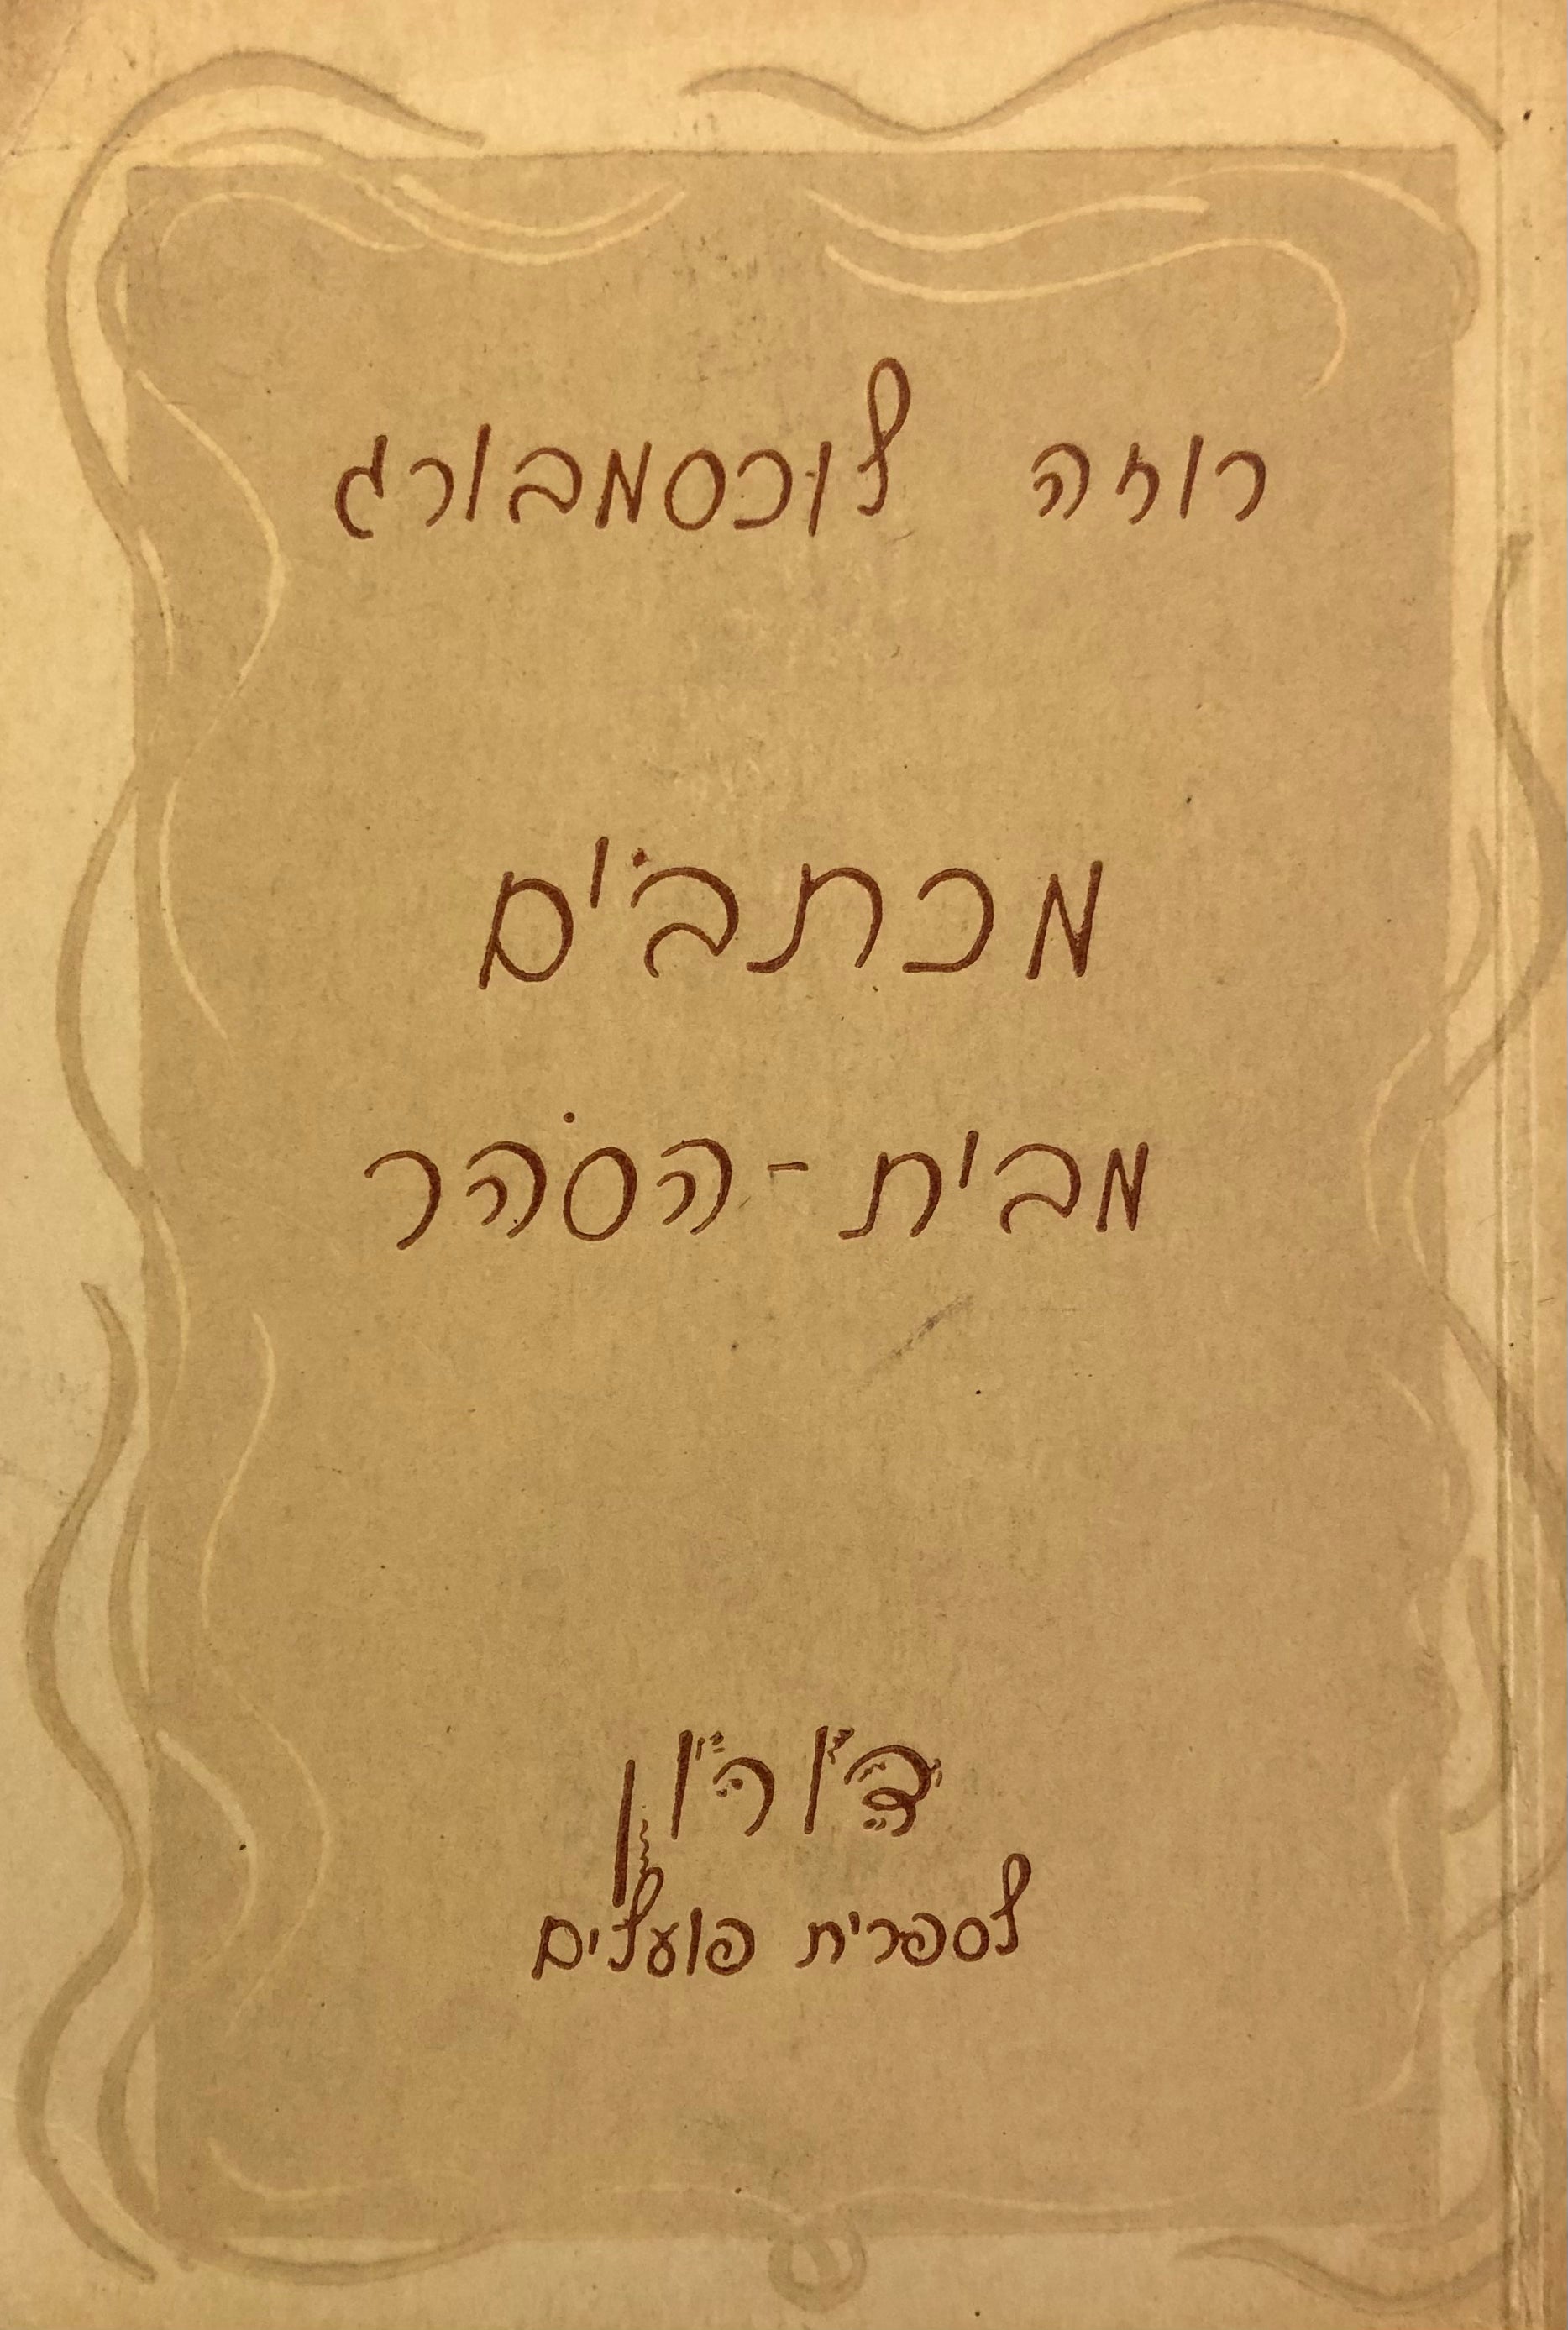 רוזה לוכסמבורג
מכתבים
מבית-הסֹהר
דורון
לספרית פועלים